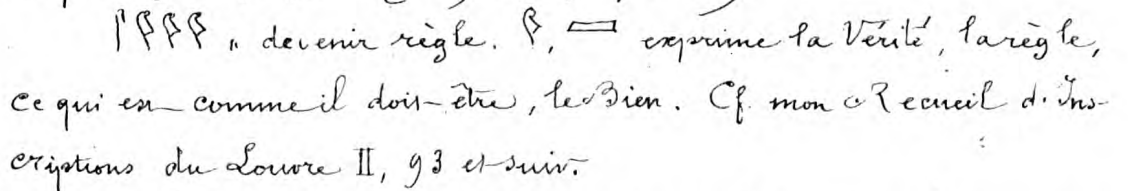 𓋴𓆄𓆄𓆄 „ devenir règle. 𓆄, 𓐙 exprime la Vérité, la règle,
ce qui est comme il doit être, le Bien. Cf. mon Recueil d'Ins-
criptions du Louvre II, 93 et suiv.